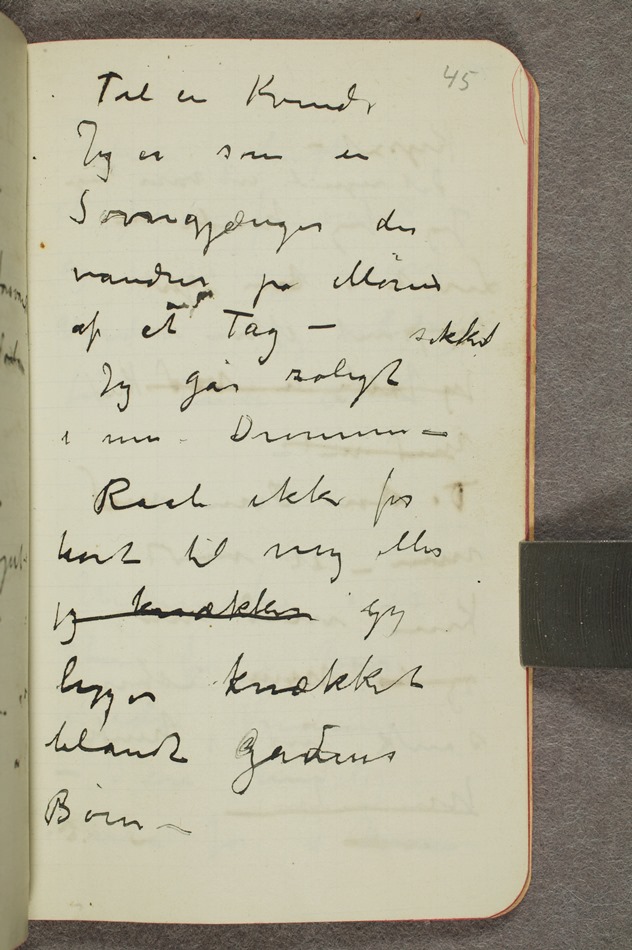 45
Til en Kvinde
Jeg er som en
Søvngjænger der
vandrer på Mønet
af et Tag – sikkert
Jeg går roligt
i min Drømmen –
Raab ikke for
hort til meg ellers
jeg knækkes jeg
ligger knækket
blandt Gadens
Børn –